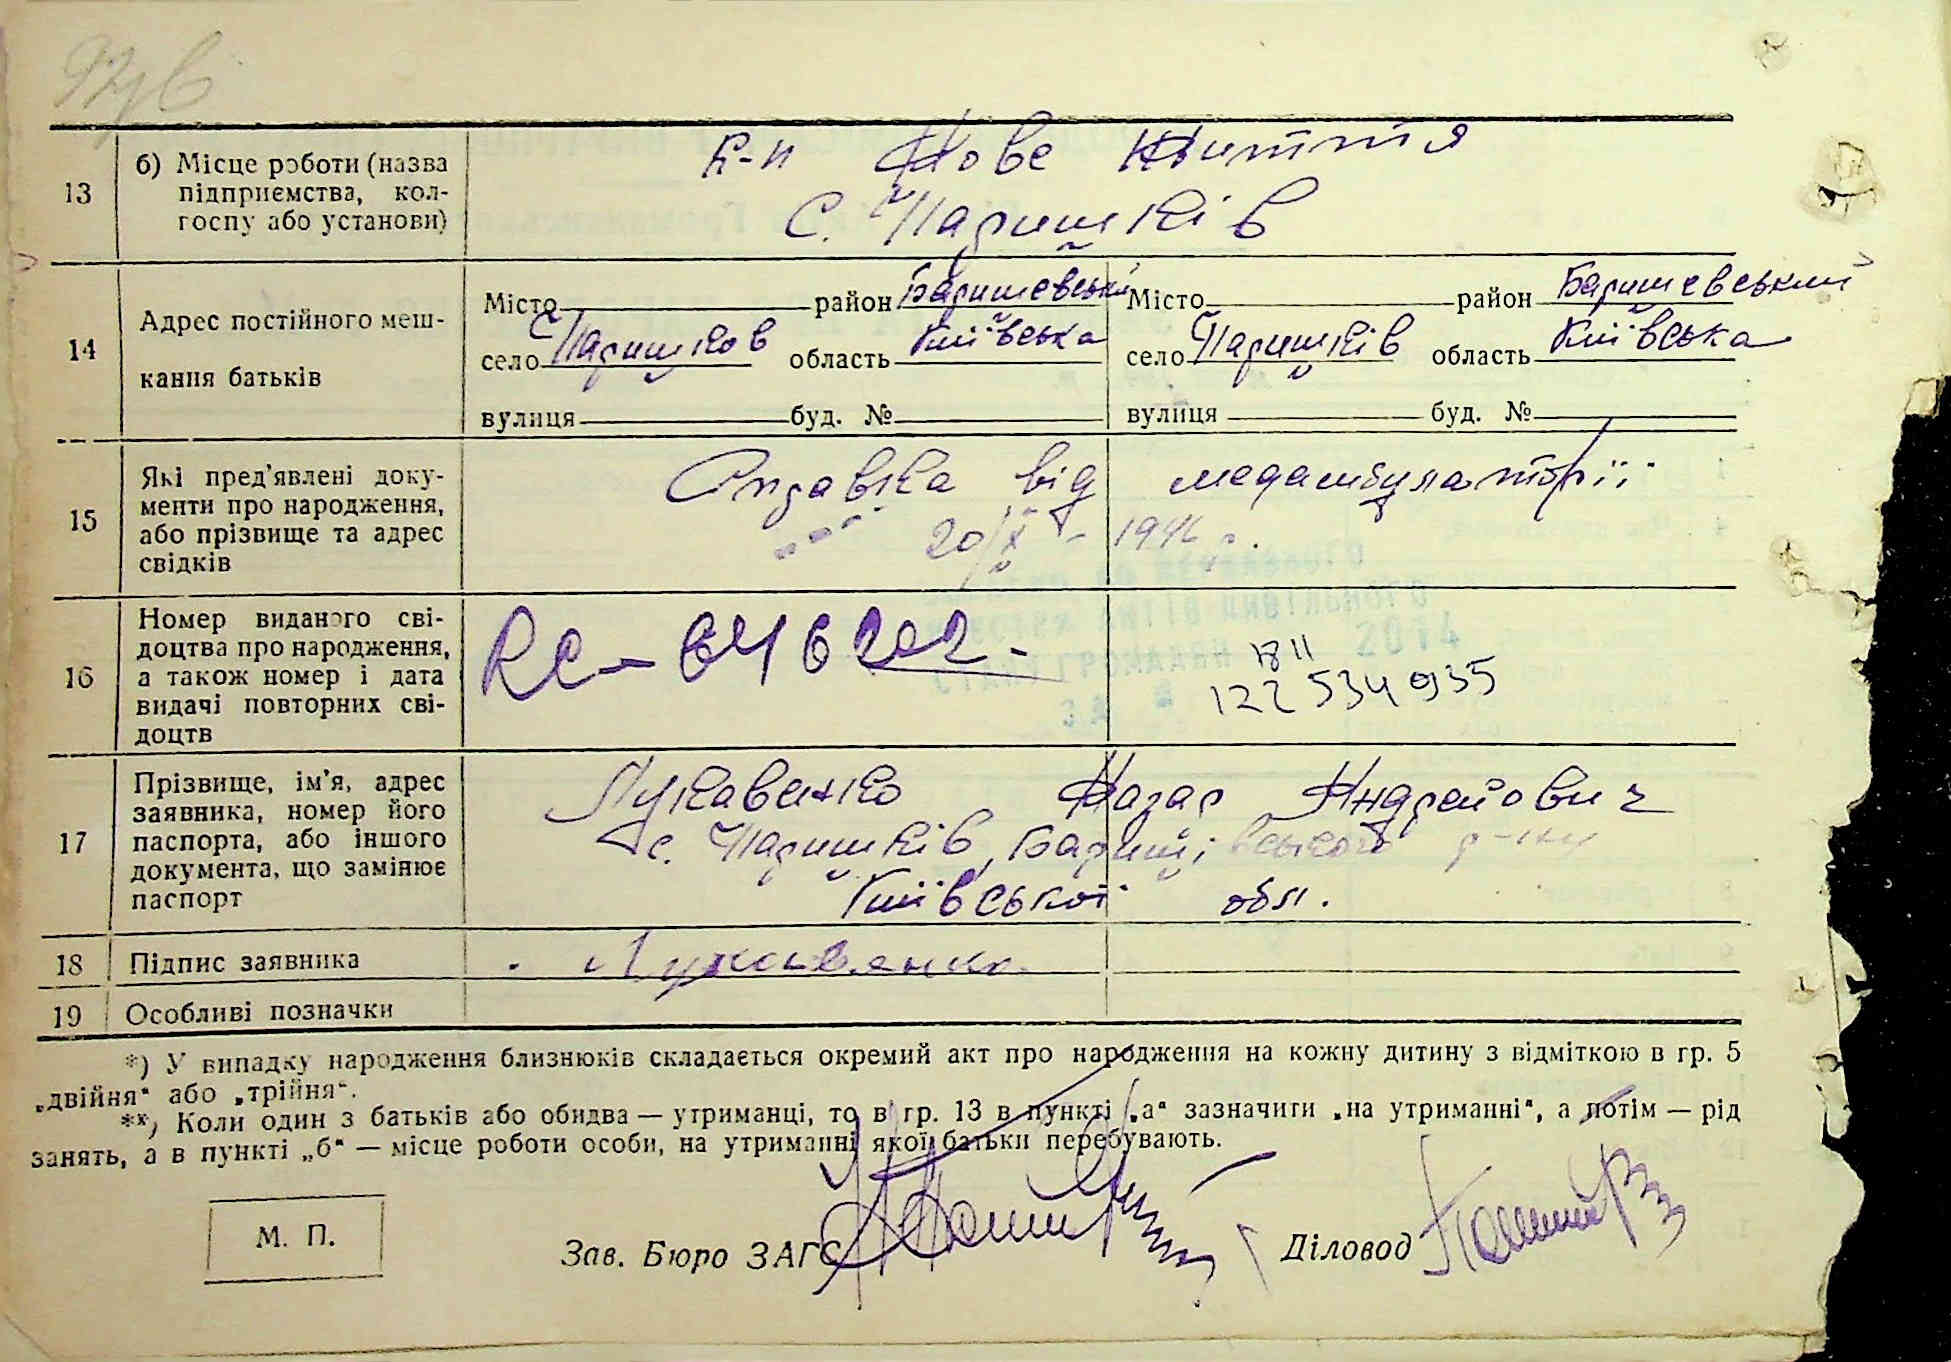 13 б) Місце роботи (назва підприємства, колгоспу або установи)
к-п Нове Життя
с. Паришків
14 Адрес постійного мешкання батьків
Місто район Баришевський Місто район Баришевський
село Паришков область Київська село Паришків область Київська
вулиця буд. № вулиця буд. №
15 Які пред'явлені документи про народження, або прізвище та адрес свідків
Справка від медамбулаторії
20/X - 1946 р.
16 Номер виданого свідоцтва про народження, а також номер і дата видачі повторних свідоцтв
18 11
122 534 935
17 Прізвище, ім'я, адрес заявника, номер його паспорта, або іншого документа, що замінює паспорт
Лукавенко Назар Андрейович
с. Паришків, Баришівського р-ну
Київської обл.
18 Підпис заявника
Лукавенко
19 Особливі позначки
*) У випадку народження близнюків складається окремий акт про народження на кожну дитину з відміткою в гр. 5
„двійня“ або „трійня“.
**) Коли один з батьків або обидва — утриманці, то в гр. 13 в пункті „а“ зазначити „на утриманні“, а потім — рід
занять, а в пункті „б“ — місце роботи особи, на утриманні якої батьки перебувають.
М. П.
Зав. Бюро ЗАГС Діловод